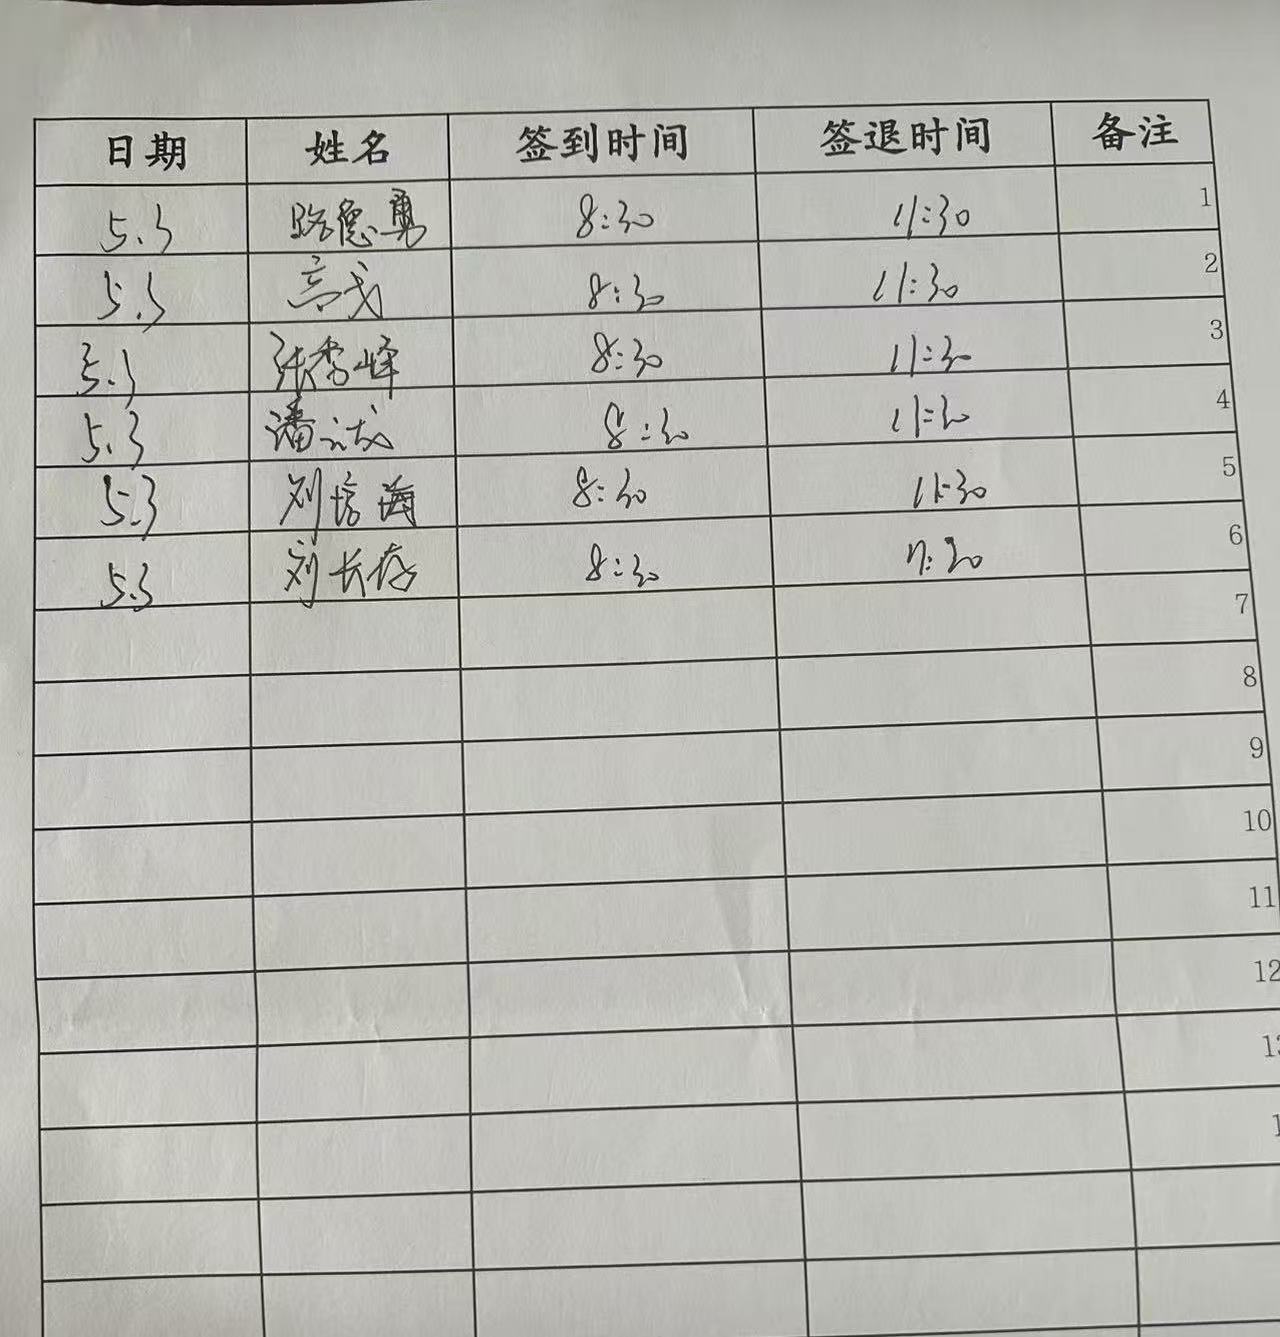 日期 姓名 签到时间 签退时间 备注
5.3 路德勇 8:30 11:30 1
5.3 高戈 8:30 11:30 2
5.3 张秀峰 8:30 11:30 3
5.3 潘 8:30 11:30 4
5.3 刘培海 8:30 11:30 5
5.3 刘长存 8:30 11:30 6
7
8
9
10
11
12